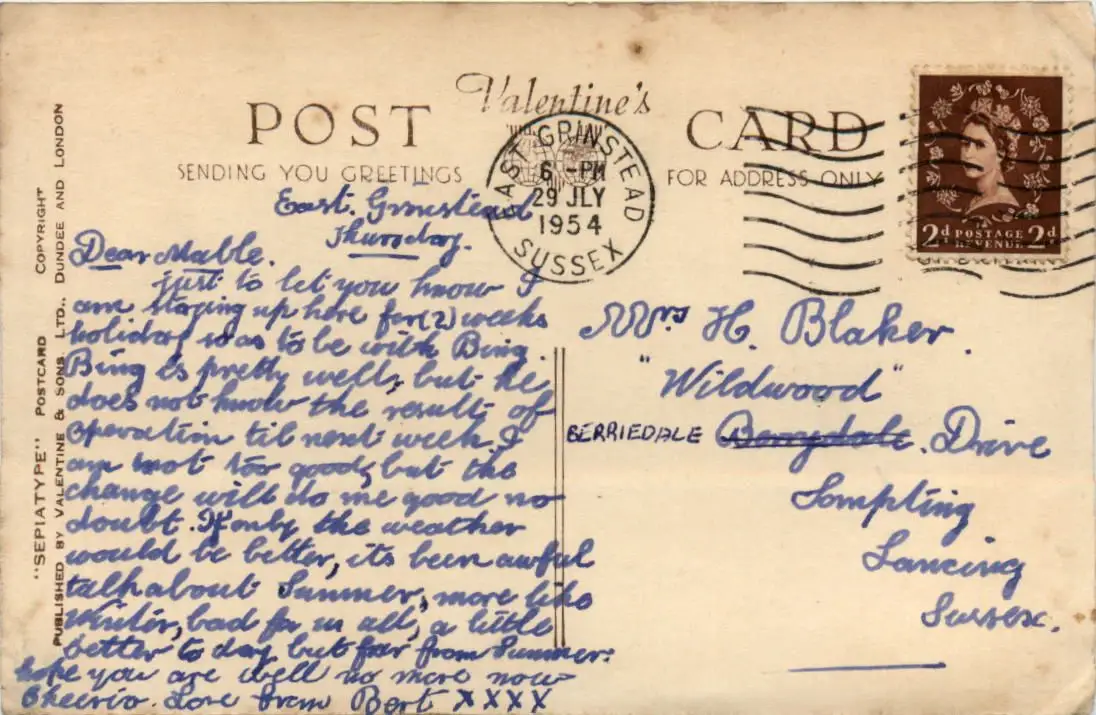 Valentine's
POST CARD
SENDING YOU GREETINGS
FOR ADDRESS ONLY
EAST GRINSTEAD
6 - PM
29 JLY
1954
SUSSEX
2d POSTAGE 2d
REVENUE
"SEPIATYPE" POSTCARD COPYRIGHT
PUBLISHED BY VALENTINE & SONS. LTD., DUNDEE AND LONDON
East. Grinstead
Thursday.
Dear Mable.
just to let you know I
am staying up here for (2) weeks
holiday so as to be with Bing.
Bing is pretty well, but he
does not know the result of
operation til next week, I
am not too good, but the
change will do me good no
doubt. If only the weather
would be better, its been awful
talk about Summer, more like
Winter, bad for us all, a little
better to day but far from Summer.
hope you are well no more now
Cheerio. Love from Bert XXXX
Mrs H. Blaker.
"Wildwood"
BERRIEDALE Berrydale. Drive
Sompting
Lancing
Sussex.